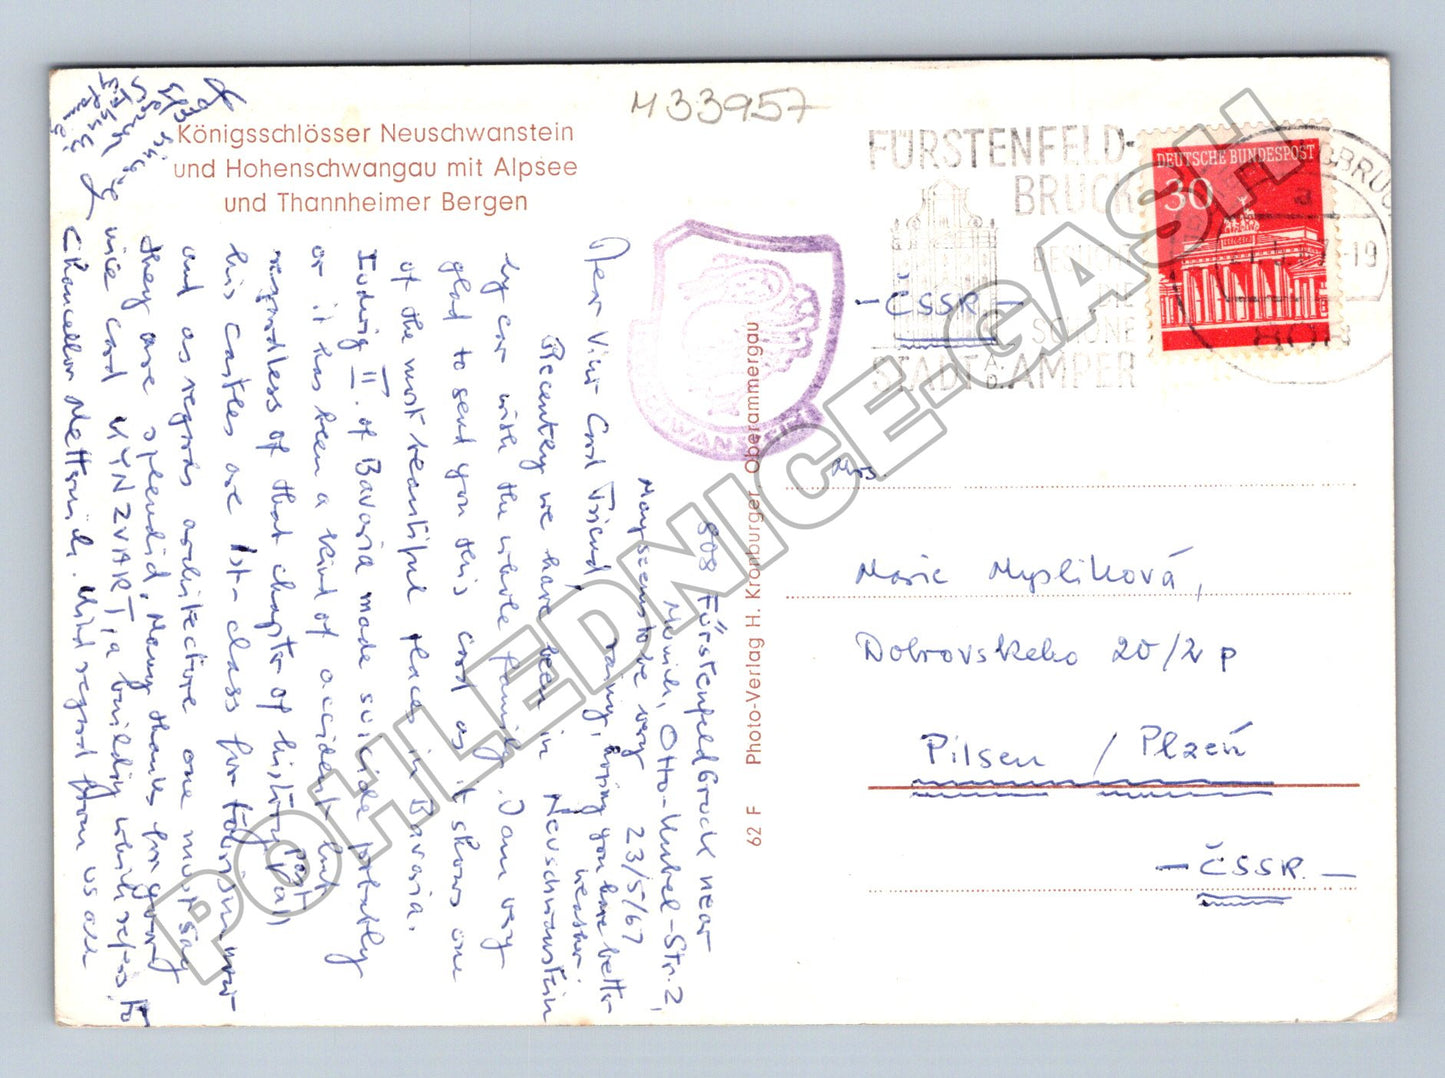 M33957
Königsschlösser Neuschwanstein
und Hohenschwangau mit Alpsee
und Thannheimer Bergen
FÜRSTENFELD-
BRUCK
DIE
SCHÖNE
STADT A. D. AMPER
DEUTSCHE BUNDESPOST
30
a
-19
808
- ČSSR -
Mrs.
Marie Myslíková,
Dobrovskeho 20/2 p
Pilsen / Plzeň
- ČSSR. -
62 F Photo-Verlag H. Kronburger Oberammergau
808 Fürstenfeldbruck near
Munich, Otto-Kubel-Str. 2,
May seems to be very 23/5/67
rainy, hoping you have better
weather.
Dear View Card Friend,
Recently we have been in Neuschwanstein
by car with the whole family. I am very
glad to send you this card as it shows one
of the most beautiful places in Bavaria.
Ludwig II. of Bavaria made suicide probably
or it has been a kind of accident but
regardless of that chapter of history past
his castles are 1st-class for tourism now
and as regards architecture one must say
they are splendid. Many thanks for your
nice card KYNZVART, a building which refers to
Chancellor Metternich. Kind regards from us all
POHLEDNICE.GASH